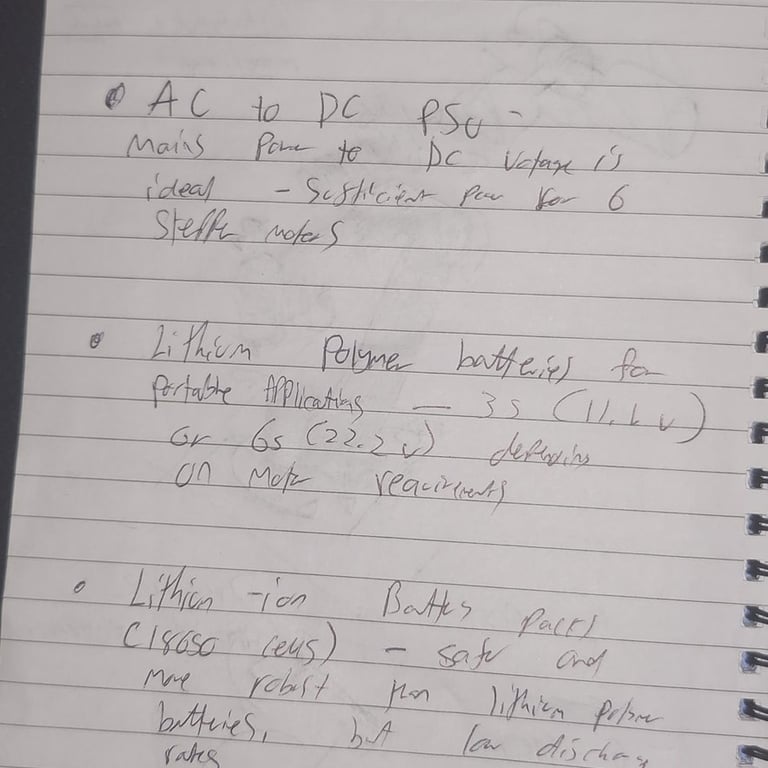 AC to DC PSU -
Mains Power to DC Voltage is
ideal - Sufficient power for 6
Stepper motors
Lithium Polymer batteries for
Portable Applications — 3s (11.1v)
or 6s (22.2v) depending
on Motor requirements
Lithium-ion Battery packs
(18650 cells) - safer and
more robust than lithium polymer
batteries, but low discharge
rates